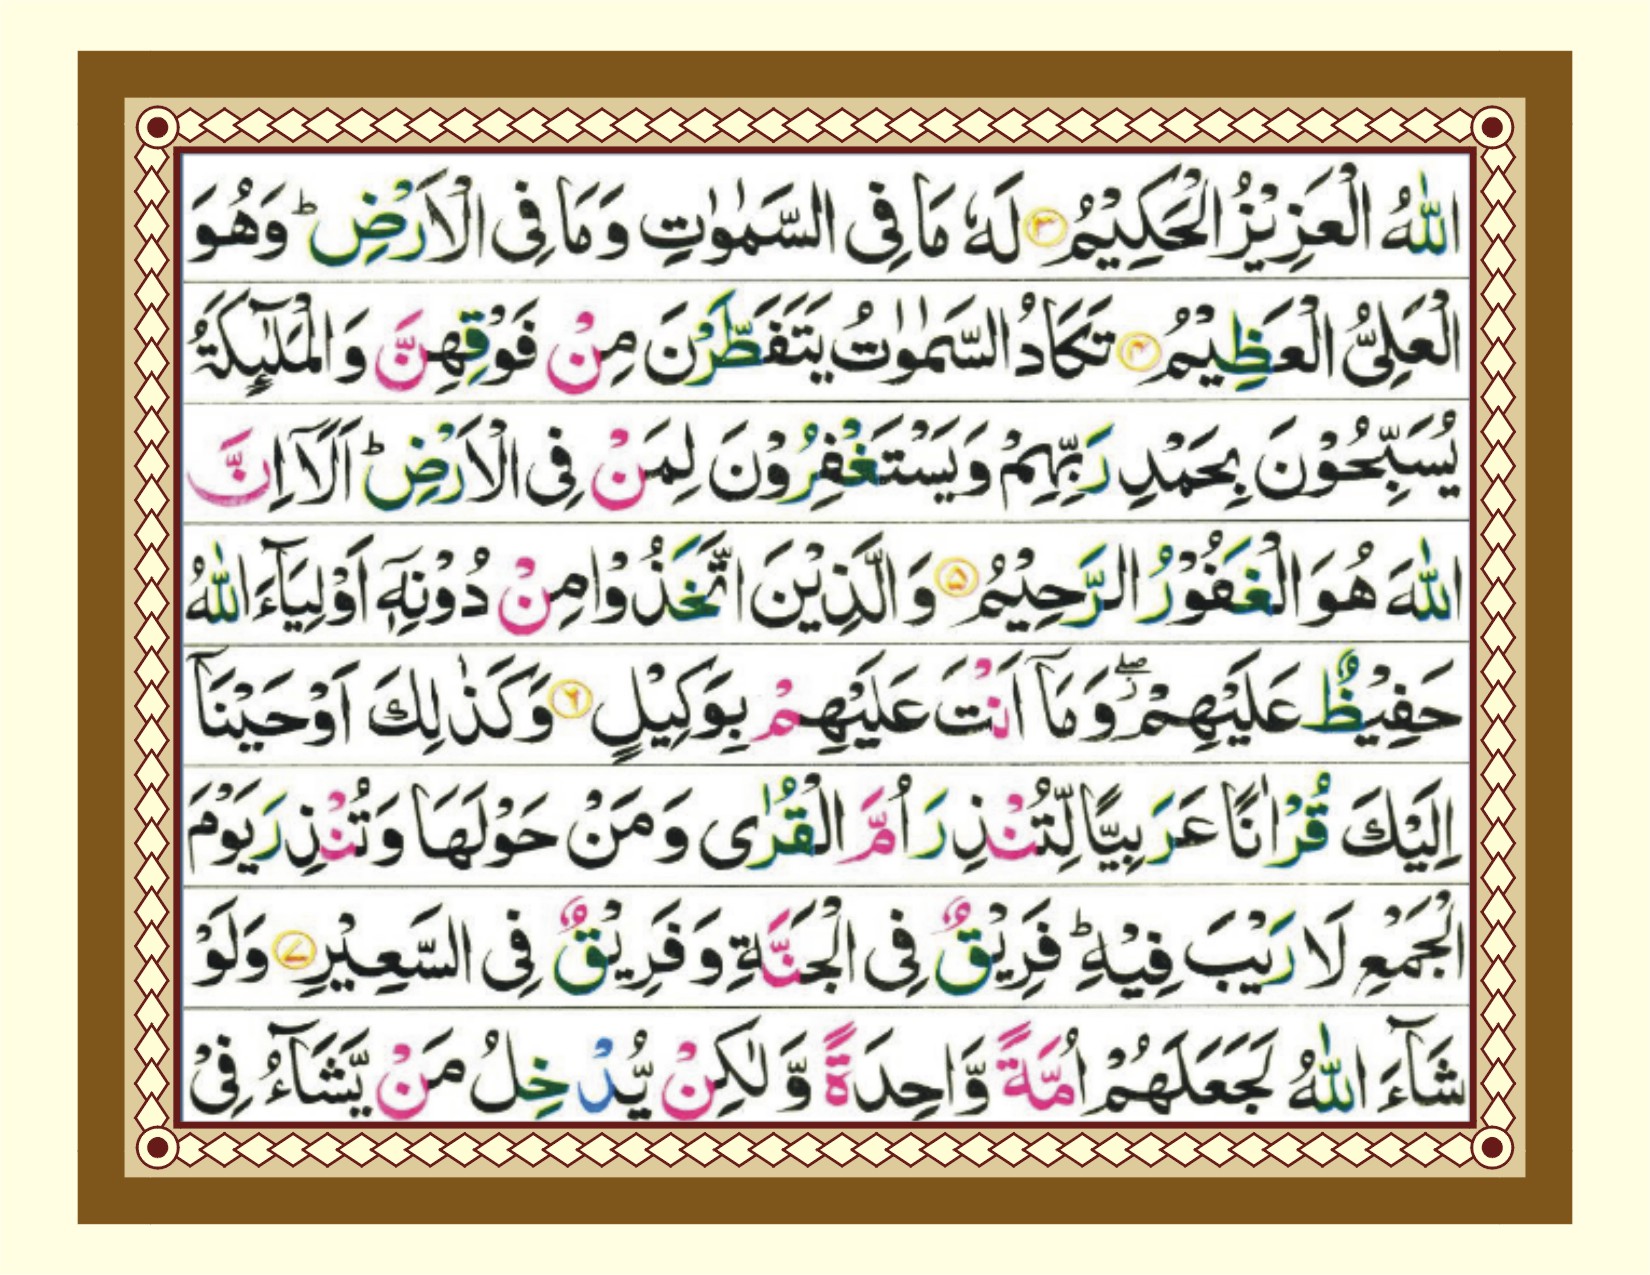 اللّٰهُ الْعَزِيْزُ الْحَكِيْمُ ۝۳ لَهٗ مَا فِى السَّمٰوٰتِ وَمَا فِى الْاَرْضِ ؕ وَهُوَ
الْعَلِىُّ الْعَظِيْمُ ۝۴ تَكَادُ السَّمٰوٰتُ يَتَفَطَّرْنَ مِنْ فَوْقِهِنَّ وَالْمَلٰٓئِكَةُ
يُسَبِّحُوْنَ بِحَمْدِ رَبِّهِمْ وَيَسْتَغْفِرُوْنَ لِمَنْ فِى الْاَرْضِ ؕ اَلَاۤ اِنَّ
اللّٰهَ هُوَ الْغَفُوْرُ الرَّحِيْمُ ۝۵ وَالَّذِيْنَ اتَّخَذُوْا مِنْ دُوْنِهٖۤ اَوْلِيَآءَ اللّٰهُ
حَفِيْظٌ عَلَيْهِمْ ۖؗ وَمَاۤ اَنْتَ عَلَيْهِمْ بِوَكِيْلٍ ۝۶ وَكَذٰلِكَ اَوْحَيْنَاۤ
اِلَيْكَ قُرْاٰنًا عَرَبِيًّا لِّتُنْذِرَ اُمَّ الْقُرٰى وَمَنْ حَوْلَهَا وَتُنْذِرَ يَوْمَ
الْجَمْعِ لَا رَيْبَ فِيْهِ ؕ فَرِيْقٌ فِى الْجَنَّةِ وَفَرِيْقٌ فِى السَّعِيْرِ ۝۷ وَلَوْ
شَآءَ اللّٰهُ لَجَعَلَهُمْ اُمَّةً وَّاحِدَةً وَّلٰكِنْ يُّدْخِلُ مَنْ يَّشَآءُ فِىْ